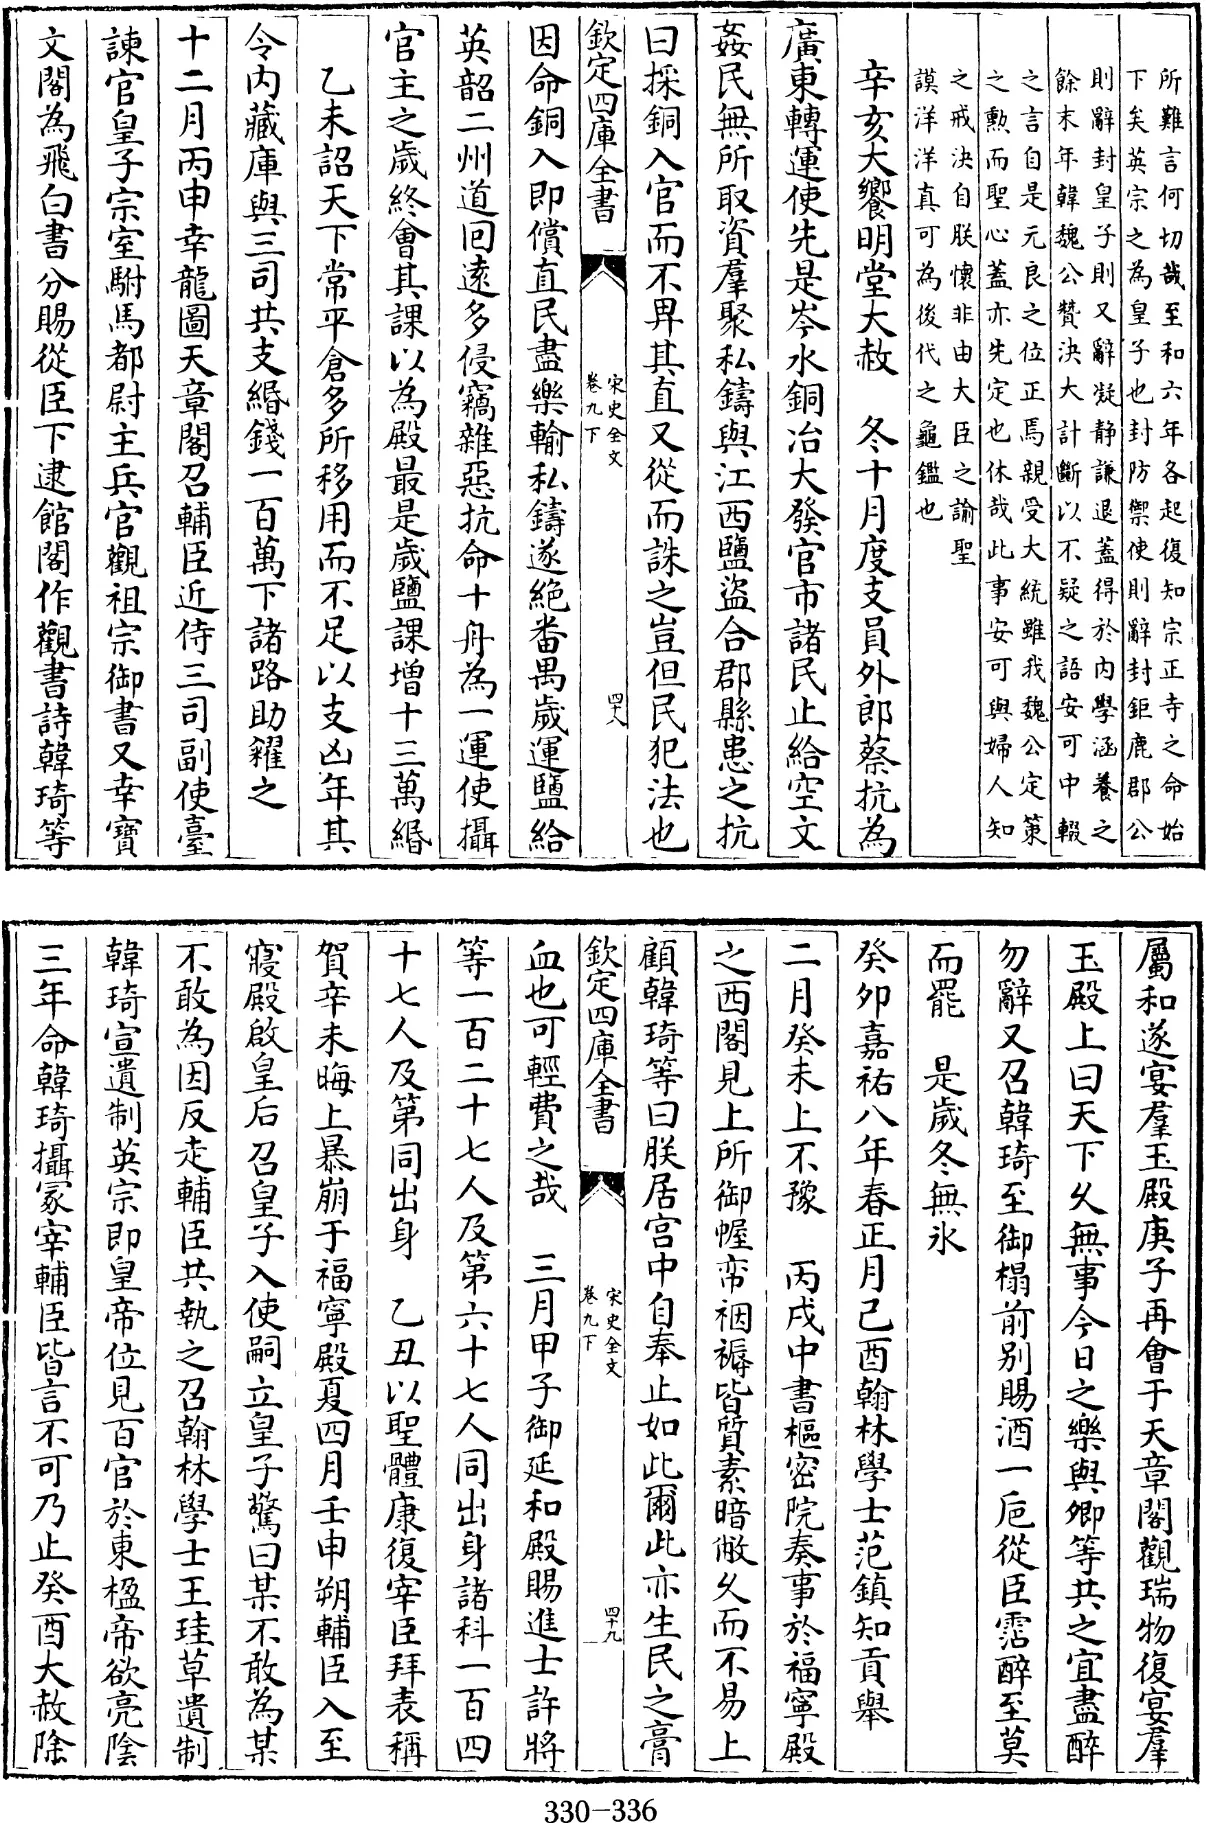 所難言何切哉至和六年各起復知宗正寺之命始
下矣英宗之為皇子也封防禦使則辭封鉅鹿郡公
則辭封皇子則又辭凝静謙退蓋得於内學涵養之
餘末年韓魏公贊決大計斷以不疑之語安可中輟
之言自是元良之位正焉親受大統雖我魏公定策
之勲而聖心蓋亦先定也休哉此事安可與婦人知
之戒決自朕懷非由大臣之諭聖
謨洋洋真可為後代之龜鑑也
辛亥大饗明堂大赦　冬十月度支員外郎蔡抗為
廣東轉運使先是岑水銅冶大發官市諸民止給空文
姦民無所取資羣聚私鑄與江西鹽盜合郡縣患之抗
曰採銅入官而不畀其直又從而誅之豈但民犯法也
欽定四庫全書
宋史全文
卷九下
四十八
因命銅入即償直民盡樂輸私鑄遂絶番禺歲運鹽給
英韶二州道回逺多侵竊雜惡抗命十舟為一運使攝
官主之歲終會其課以為殿最是歲鹽課增十三萬緡
乙未詔天下常平倉多所移用而不足以支凶年其
令内藏庫與三司共支緡錢一百萬下諸路助糴之
十二月丙申幸龍圖天章閣召輔臣近侍三司副使臺
諫官皇子宗室駙馬都尉主兵官觀祖宗御書又幸寶
文閣為飛白書分賜從臣下逮館閣作觀書詩韓琦等
屬和遂宴羣玉殿庚子再會于天章閣觀瑞物復宴羣
玉殿上曰天下乆無事今日之樂與卿等共之宜盡醉
勿辭又召韓琦至御榻前别賜酒一巵從臣霑醉至莫
而罷　是歲冬無氷
癸卯嘉祐八年春正月己酉翰林學士范鎮知貢舉
二月癸未上不豫　丙戌中書樞密院奏事於福寧殿
之西閣見上所御幄帟裀褥皆質素暗敝乆而不易上
顧韓琦等曰朕居宫中自奉止如此爾此亦生民之膏
欽定四庫全書
宋史全文
卷九下
四十九
血也可輕費之哉　三月甲子御延和殿賜進士許將
等一百二十七人及第六十七人同出身諸科一百四
十七人及第同出身　乙丑以聖體康復宰臣拜表稱
賀辛未晦上暴崩于福寧殿夏四月壬申朔輔臣入至
寢殿啟皇后召皇子入使嗣立皇子驚曰某不敢為某
不敢為因反走輔臣共執之召翰林學士王珪草遺制
韓琦宣遺制英宗即皇帝位見百官於東楹帝欲亮陰
三年命韓琦攝冢宰輔臣皆言不可乃止癸酉大赦除
330-336